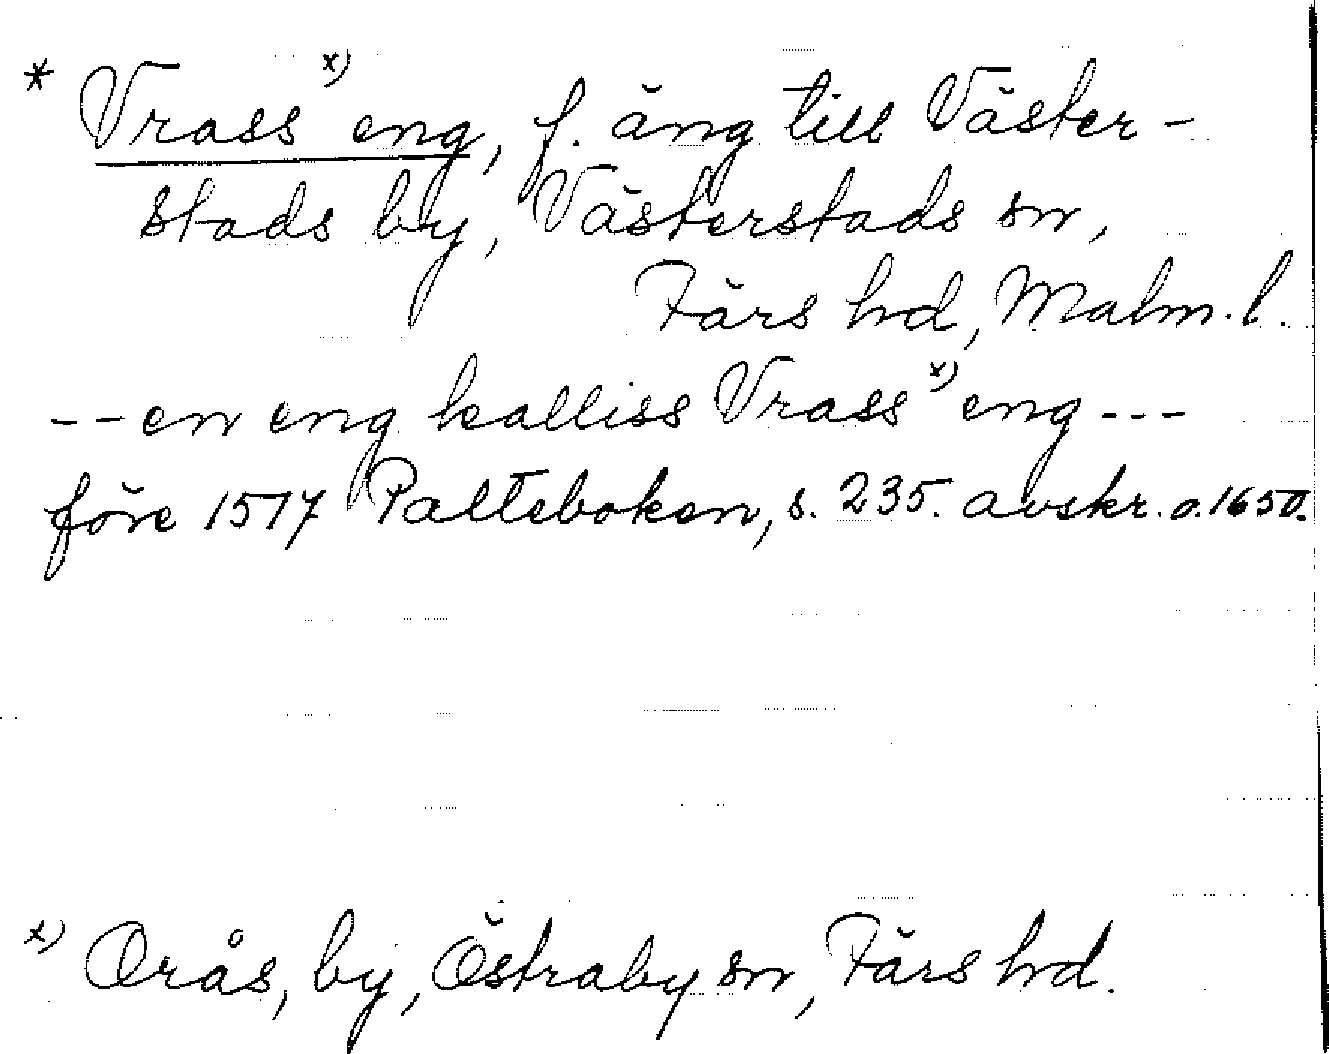 * Vrass x) eng, f. äng till Väster-
stads by, Västerstads sn,
Färs hd, Malm. l.
-- en eng kalliss Vrass x) eng ---
före 1517 Palteboken, s. 235. avskr. o. 1650.
x) Orås, by, Östraby sn, Färs hd.